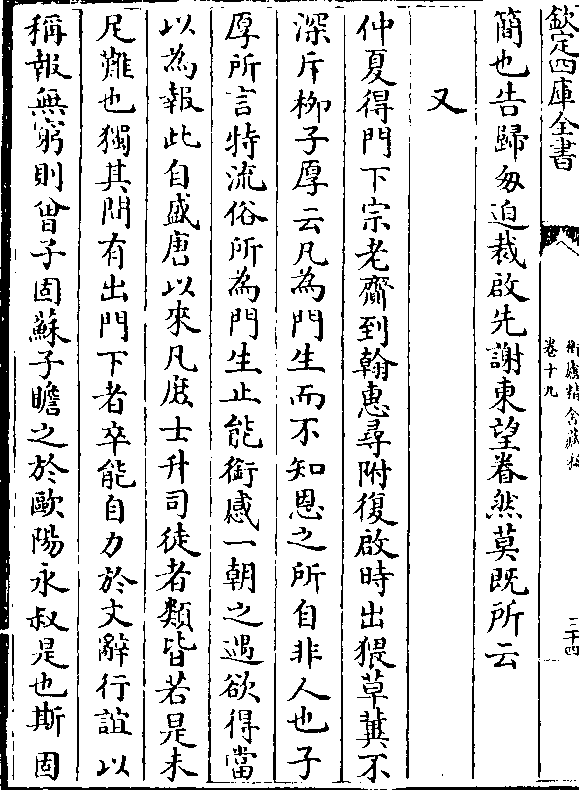 欽定四庫全書
衡廬精舍藏稿
卷十九
三十四
簡也告歸匆迫裁啟先謝東望眷然莫既所云
又
仲夏得門下宗老齎到翰惠尋附復啟時出猥草冀不
深斥柳子厚云凡為門生而不知恩之所自非人也子
厚所言特流俗所為門生止能銜感一朝之遇欲得當
以為報此自盛唐以來凡庻士升司徒者類皆若是未
足難也獨其間有出門下者卒能自力於文辭行誼以
稱報無窮則曾子固蘇子瞻之於歐陽永叔是也斯固